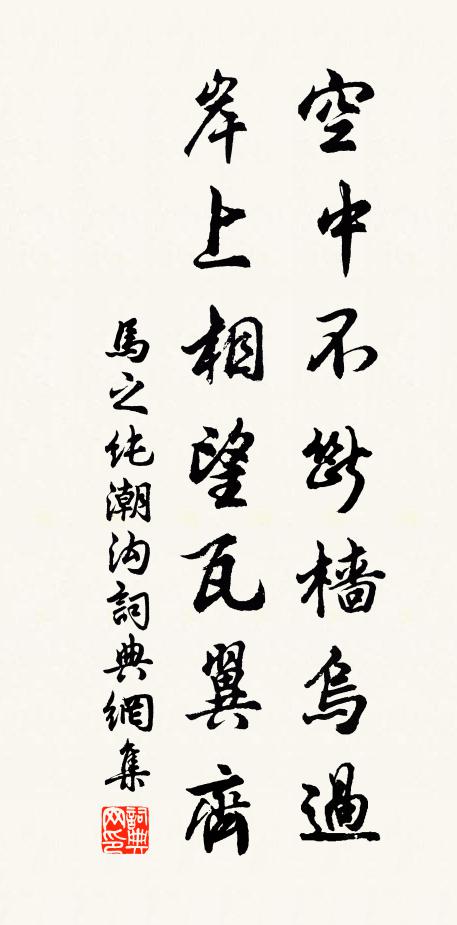 空中不斷檣烏過
岸上相望瓦翼齊
馬之純潮沟詞典網集
詞典网印